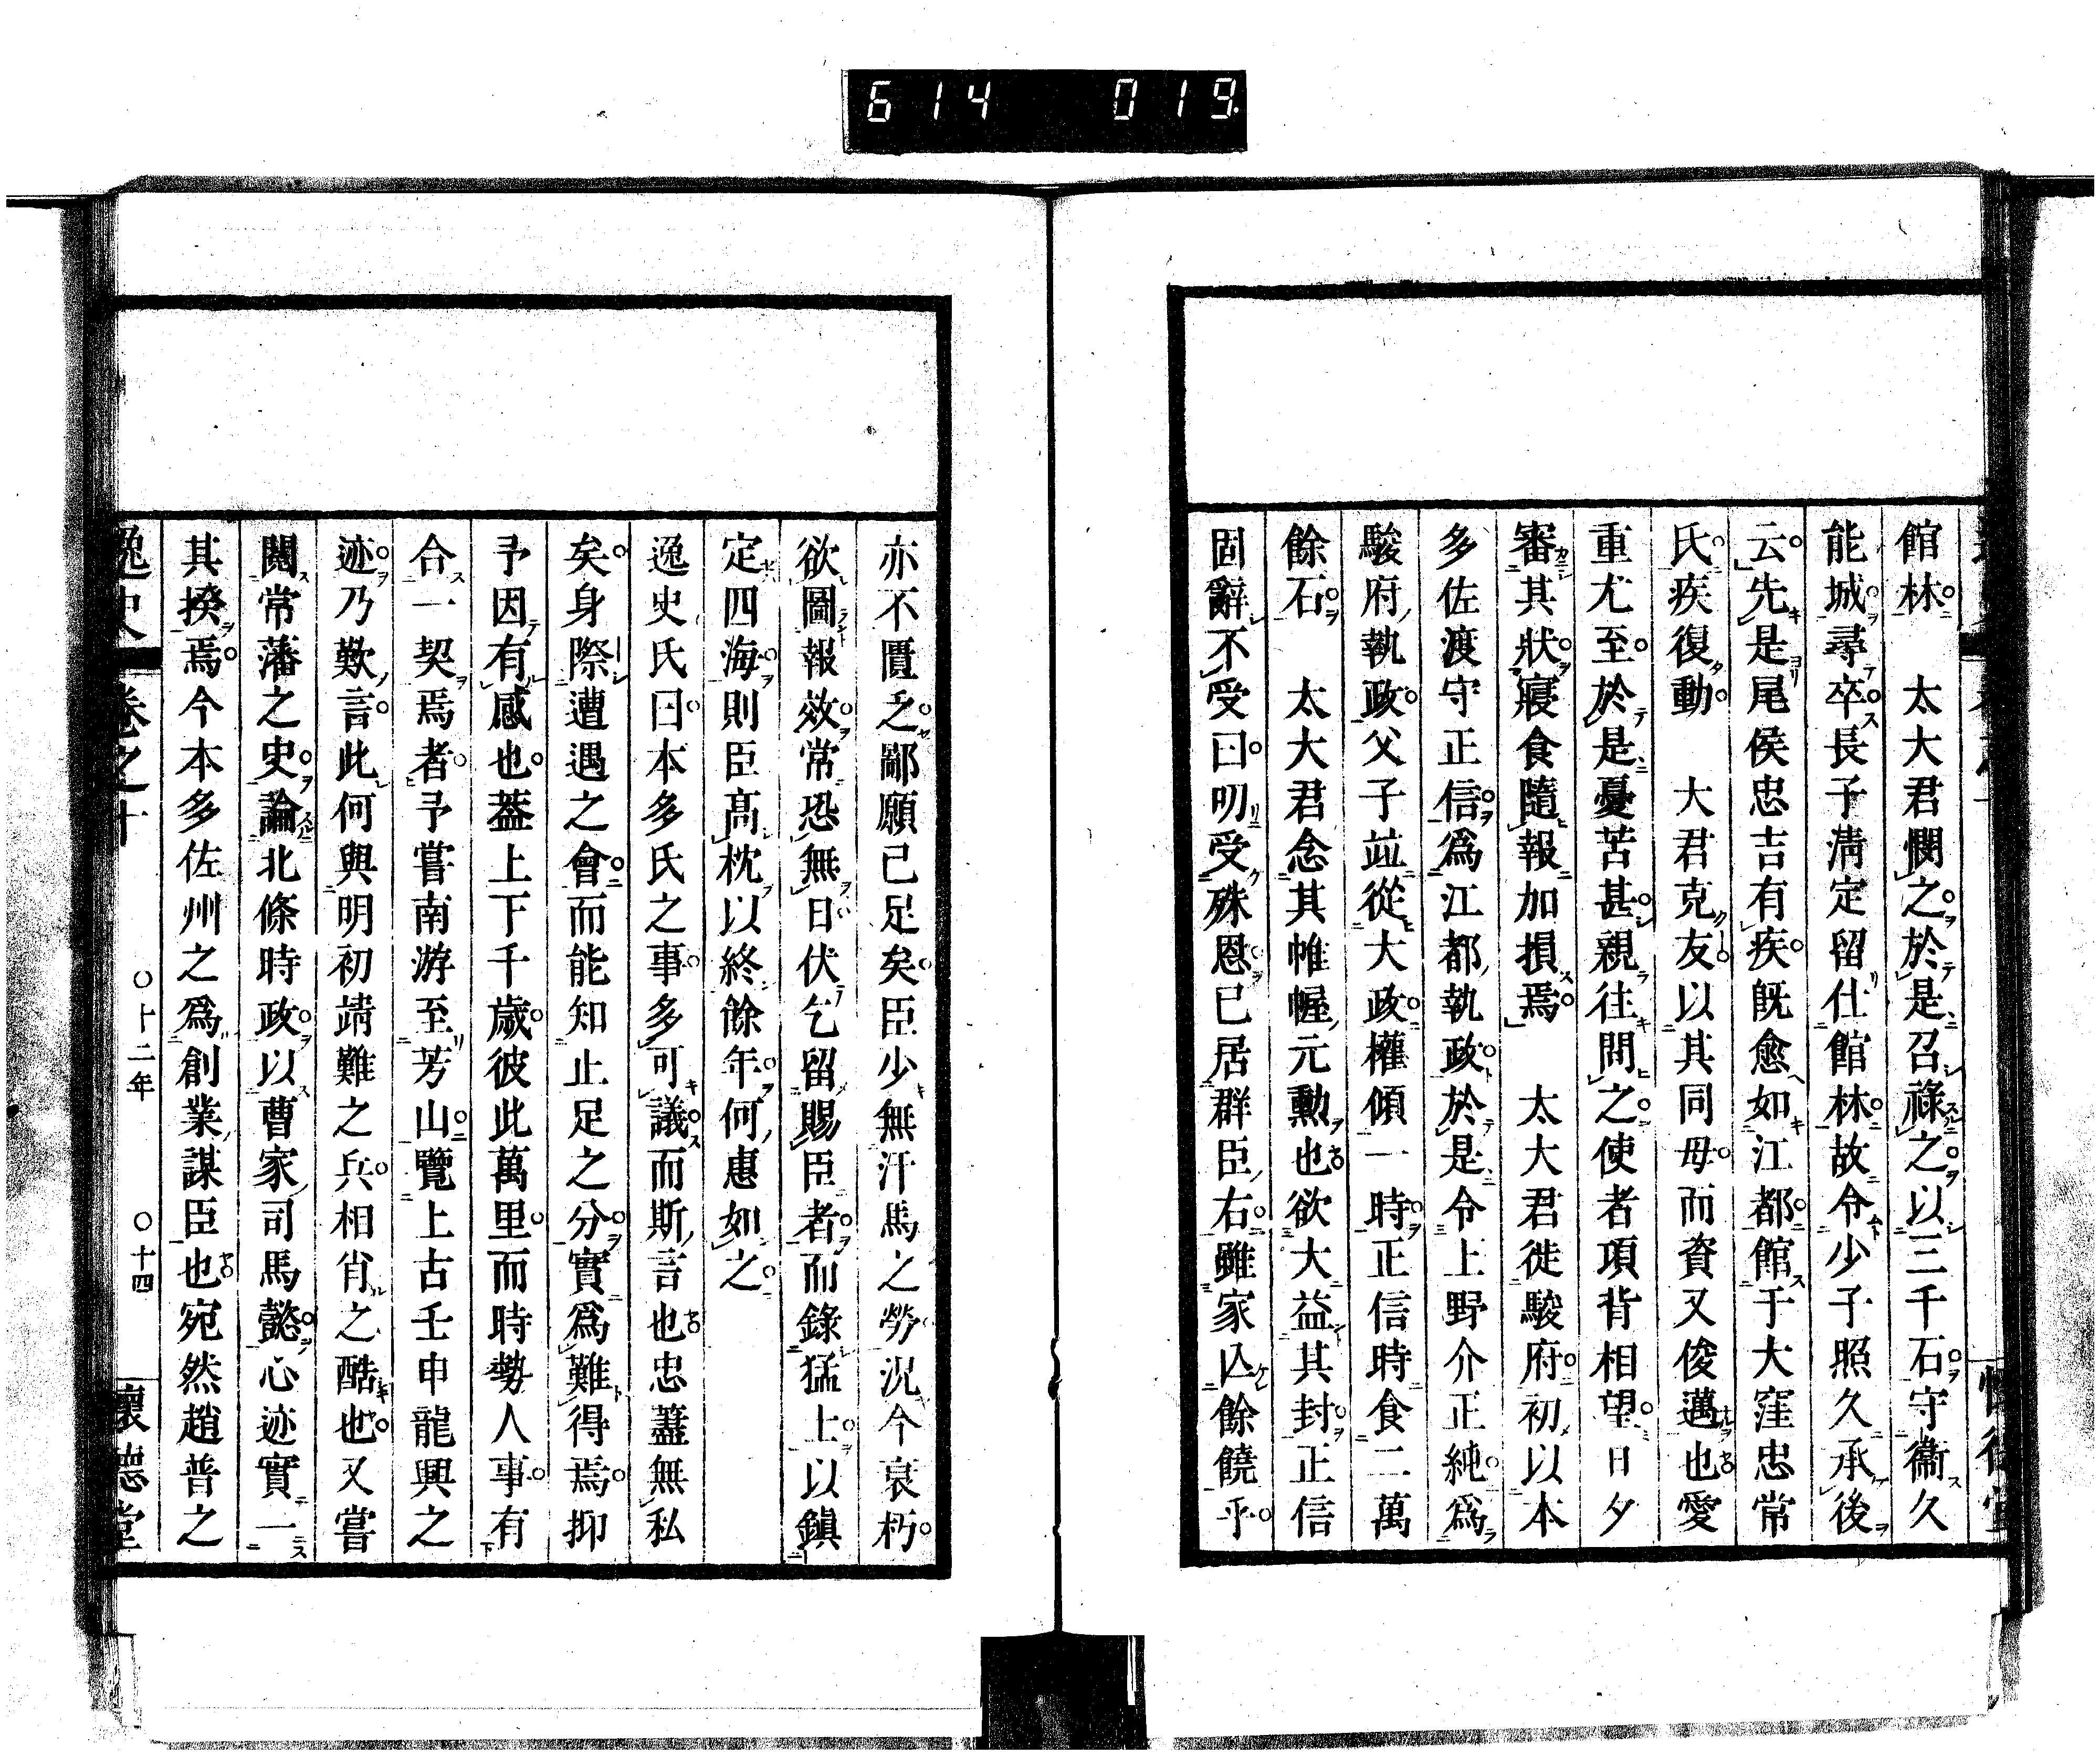 614 019
館林 太大君憫之於是召祿之以三千石守衞久
能城尋卒長子淸定留仕館林故令少子照久承後
云先是尾侯忠吉有疾既愈如江都館于大窪忠常
氏疾復動 大君克友以其同母而資又俊邁也愛
重尤至於是憂苦甚親往問之使者項背相望日夕
審其狀寢食隨報加損焉 太大君徙駿府初以本
多佐渡守正信爲江都執政於是令上野介正純爲
駿府執政父子並從大政權傾一時正信時食二萬
餘石 太大君念其帷幄元勳也欲大益其封正信
固辭不受曰叨受殊恩已居群臣右雖家亾餘饒乎
亦不匱乏鄙願已足矣臣少無汗馬之勞況今衰朽
欲圖報效常恐無日伏乞留賜臣者而錄猛士以鎭
定四海則臣高枕以終餘年何惠如之
逸史氏曰本多氏之事多可議而斯言也忠藎無私
矣身際遭遇之會而能知止足之分實爲難得焉抑
予因有感也蓋上下千歲彼此萬里而時勢人事有
合一契焉者予嘗南游至芳山覽上古壬申龍興之
迹乃歎言此何與明初靖難之兵相肖之酷也又嘗
閱常藩之史論北條時政以曹家司馬懿心迹實一
其揆焉今本多佐州之爲創業謀臣也宛然趙普之
逸史 卷之十 〇十二年 〇十四 懷德堂